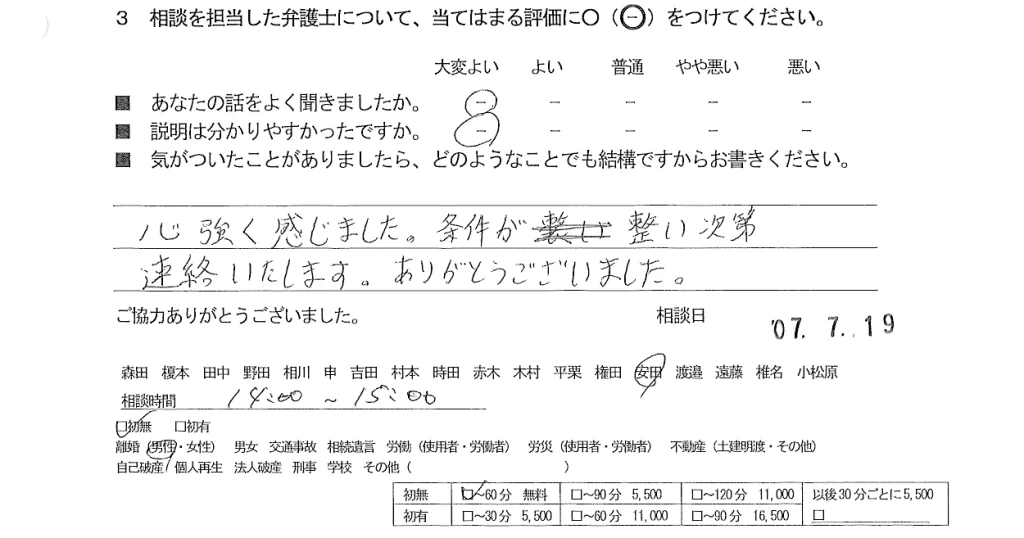 3 相談を担当した弁護士について、当てはまる評価に○(⊖)をつけてください。
大変よい よい 普通 やや悪い 悪い
■ あなたの話をよく聞きましたか。 － － － － －
■ 説明は分かりやすかったですか。 － － － － －
■ 気がついたことがありましたら、どのようなことでも結構ですからお書きください。
心強く感じました。条件が 整い次第
連絡いたします。ありがとうございました。
ご協力ありがとうございました。 相談日 '07. 7. 19
森田 榎本 田中 野田 相川 申 吉田 村本 時田 赤木 木村 平栗 権田 安田 渡邉 遠藤 椎名 小松原
相談時間 14:00 ~ 15:00
□初無 □初有
離婚(男性・女性) 男女 交通事故 相続遺言 労働(使用者・労働者) 労災(使用者・労働者) 不動産(土建明渡・その他)
自己破産 個人再生 法人破産 刑事 学校 その他( )
初無 □～60分 無料 □～90分 5,500 □～120分 11,000 以後30分ごとに5,500
初有 □～30分 5,500 □～60分 11,000 □～90分 16,500 □